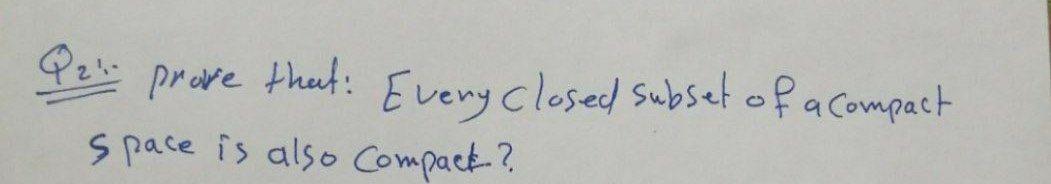 Q2:- prove that: Every closed subset of a compact
space is also compact?